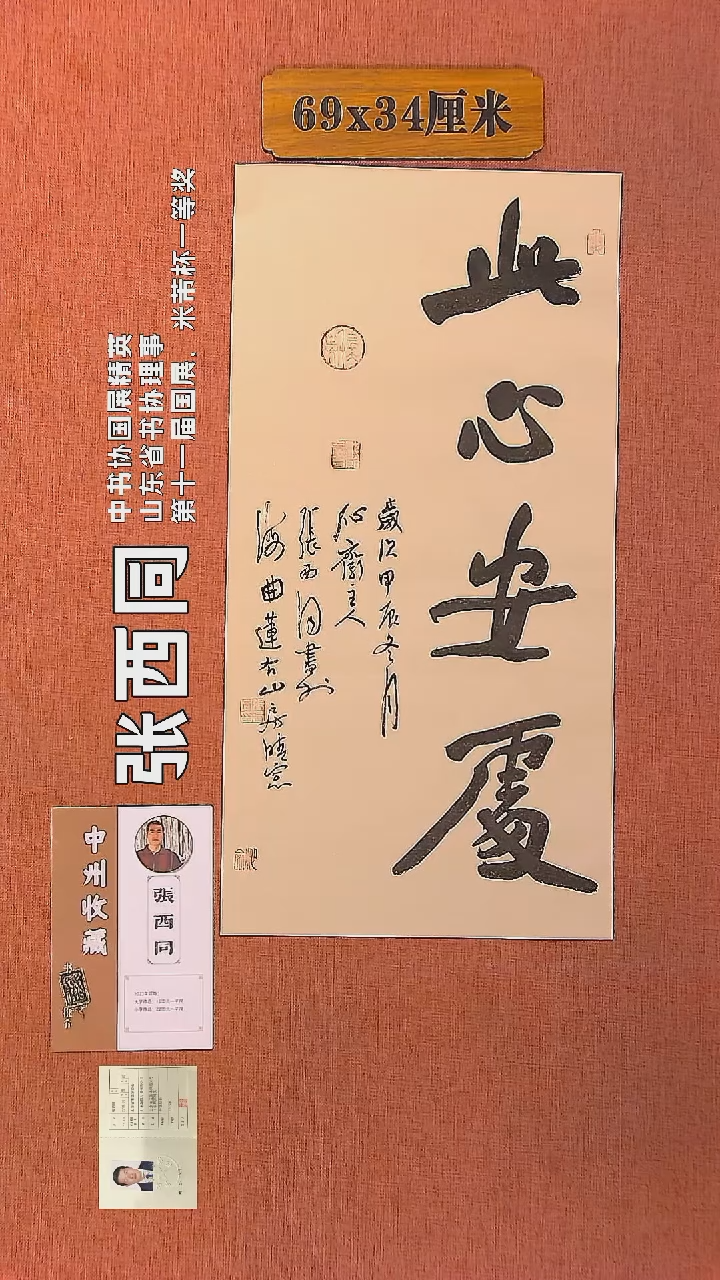 69x34厘米
此
心
安
處
歲次甲辰冬月
心齋主人
張西同書於
海曲蓮石山房晴窓
中书协国展精英
山东省书协理事
第十一届国展、米芾杯一等奖
张西同
中州收藏
張西同